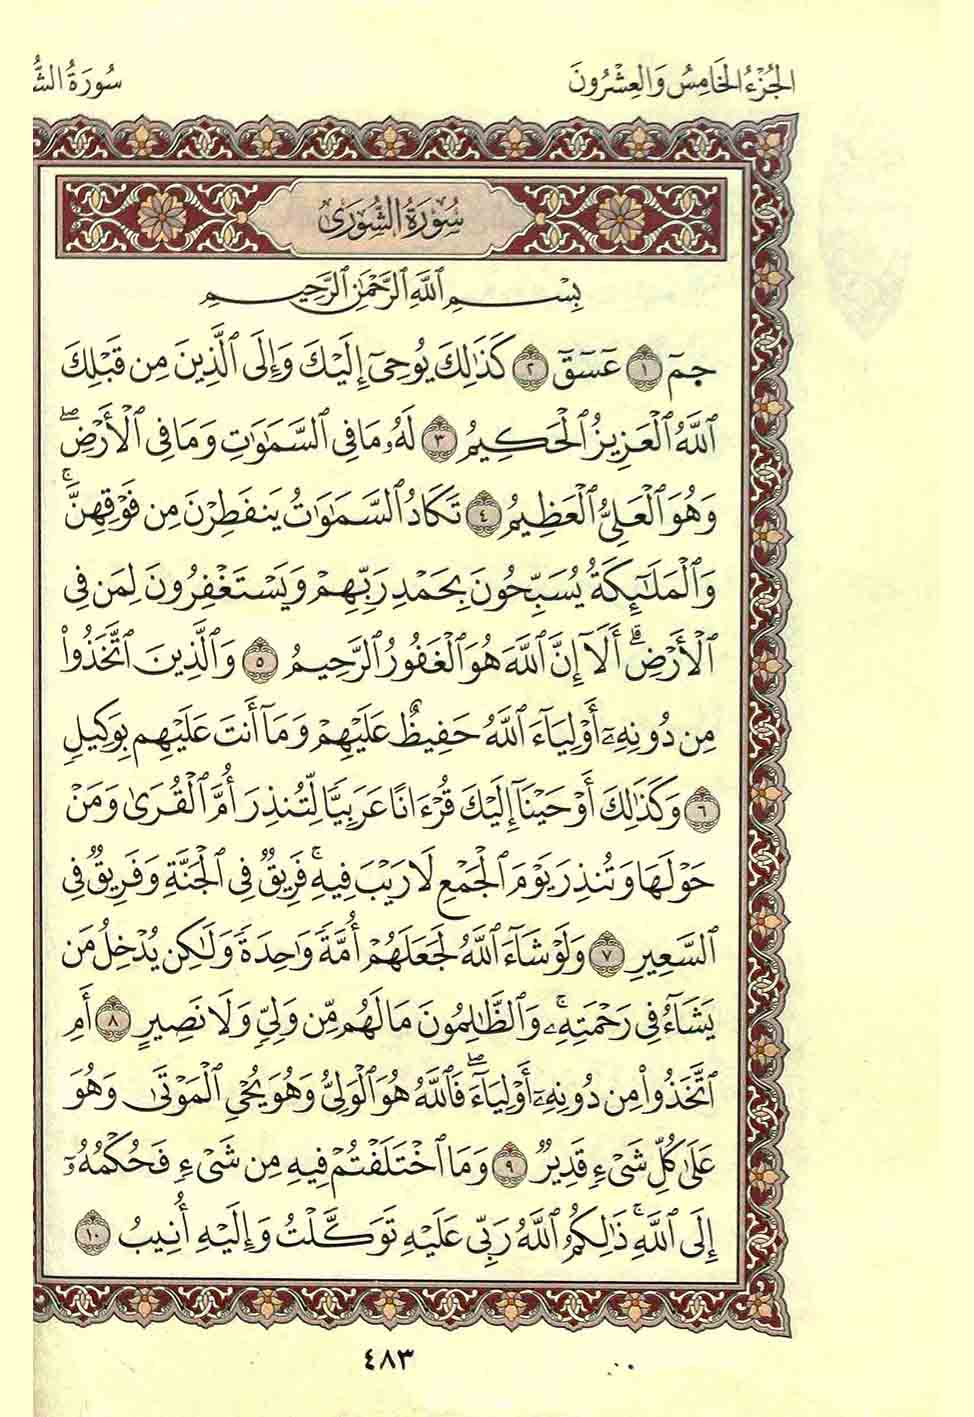 الجزء الخامس والعشرون
سورة الش
سُورَةُ الشُّورَىٰ
بِسْمِ ٱللَّهِ ٱلرَّحْمَٰنِ ٱلرَّحِيمِ
حمٓ ١ عٓسٓقٓ ٢ كَذَٰلِكَ يُوحِىٓ إِلَيْكَ وَإِلَى ٱلَّذِينَ مِن قَبْلِكَ
ٱللَّهُ ٱلْعَزِيزُ ٱلْحَكِيمُ ٣ لَهُۥ مَا فِى ٱلسَّمَٰوَٰتِ وَمَا فِى ٱلْأَرْضِ ۖ
وَهُوَ ٱلْعَلِىُّ ٱلْعَظِيمُ ٤ تَكَادُ ٱلسَّمَٰوَٰتُ يَتَفَطَّرْنَ مِن فَوْقِهِنَّ ۚ
وَٱلْمَلَٰٓئِكَةُ يُسَبِّحُونَ بِحَمْدِ رَبِّهِمْ وَيَسْتَغْفِرُونَ لِمَن فِى
ٱلْأَرْضِ ۗ أَلَآ إِنَّ ٱللَّهَ هُوَ ٱلْغَفُورُ ٱلرَّحِيمُ ٥ وَٱلَّذِينَ ٱتَّخَذُوا۟
مِن دُونِهِۦٓ أَوْلِيَآءَ ٱللَّهُ حَفِيظٌ عَلَيْهِمْ وَمَآ أَنتَ عَلَيْهِم بِوَكِيلٍ
٦ وَكَذَٰلِكَ أَوْحَيْنَآ إِلَيْكَ قُرْءَانًا عَرَبِيًّا لِّتُنذِرَ أُمَّ ٱلْقُرَىٰ وَمَنْ
حَوْلَهَا وَتُنذِرَ يَوْمَ ٱلْجَمْعِ لَا رَيْبَ فِيهِ ۚ فَرِيقٌ فِى ٱلْجَنَّةِ وَفَرِيقٌ فِى
ٱلسَّعِيرِ ٧ وَلَوْ شَآءَ ٱللَّهُ لَجَعَلَهُمْ أُمَّةً وَٰحِدَةً وَلَٰكِن يُدْخِلُ مَن
يَشَآءُ فِى رَحْمَتِهِۦ ۚ وَٱلظَّٰلِمُونَ مَا لَهُم مِّن وَلِىٍّ وَلَا نَصِيرٍ ٨ أَمِ
ٱتَّخَذُوا۟ مِن دُونِهِۦٓ أَوْلِيَآءَ ۖ فَٱللَّهُ هُوَ ٱلْوَلِىُّ وَهُوَ يُحْىِ ٱلْمَوْتَىٰ وَهُوَ
عَلَىٰ كُلِّ شَىْءٍ قَدِيرٌ ٩ وَمَا ٱخْتَلَفْتُمْ فِيهِ مِن شَىْءٍ فَحُكْمُهُۥٓ
إِلَى ٱللَّهِ ۚ ذَٰلِكُمُ ٱللَّهُ رَبِّى عَلَيْهِ تَوَكَّلْتُ وَإِلَيْهِ أُنِيبُ ١٠
٤٨٣